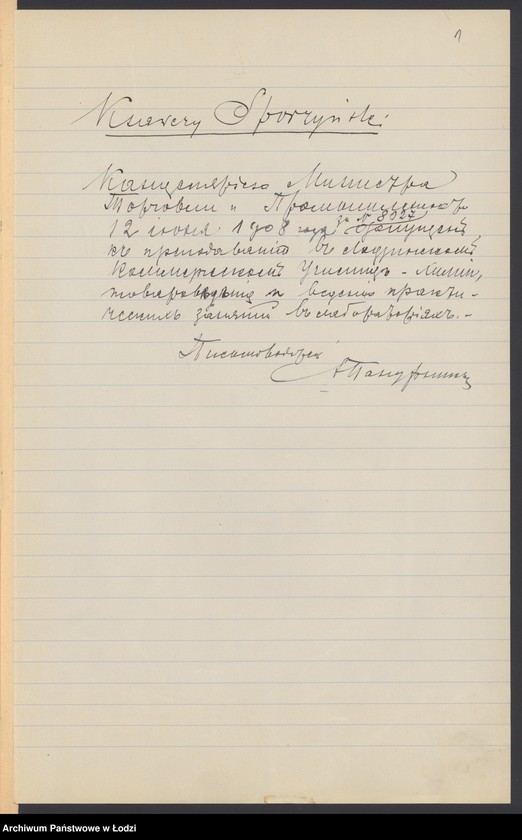 1
Ksawery Sporzyński.
Канцелярiею Министра
Торговли и Промышленности
12 iюня 1908 года за № 8327 допущенъ
къ преподаванiю въ Лодзинскомъ
Коммерческомъ Училищѣ - Химiи,
товаровѣдѣнiя и веденiю практи-
ческихъ занятiй въ лабораторiяхъ. -
Письмоводитель
Archiwum Państwowe w Łodzi